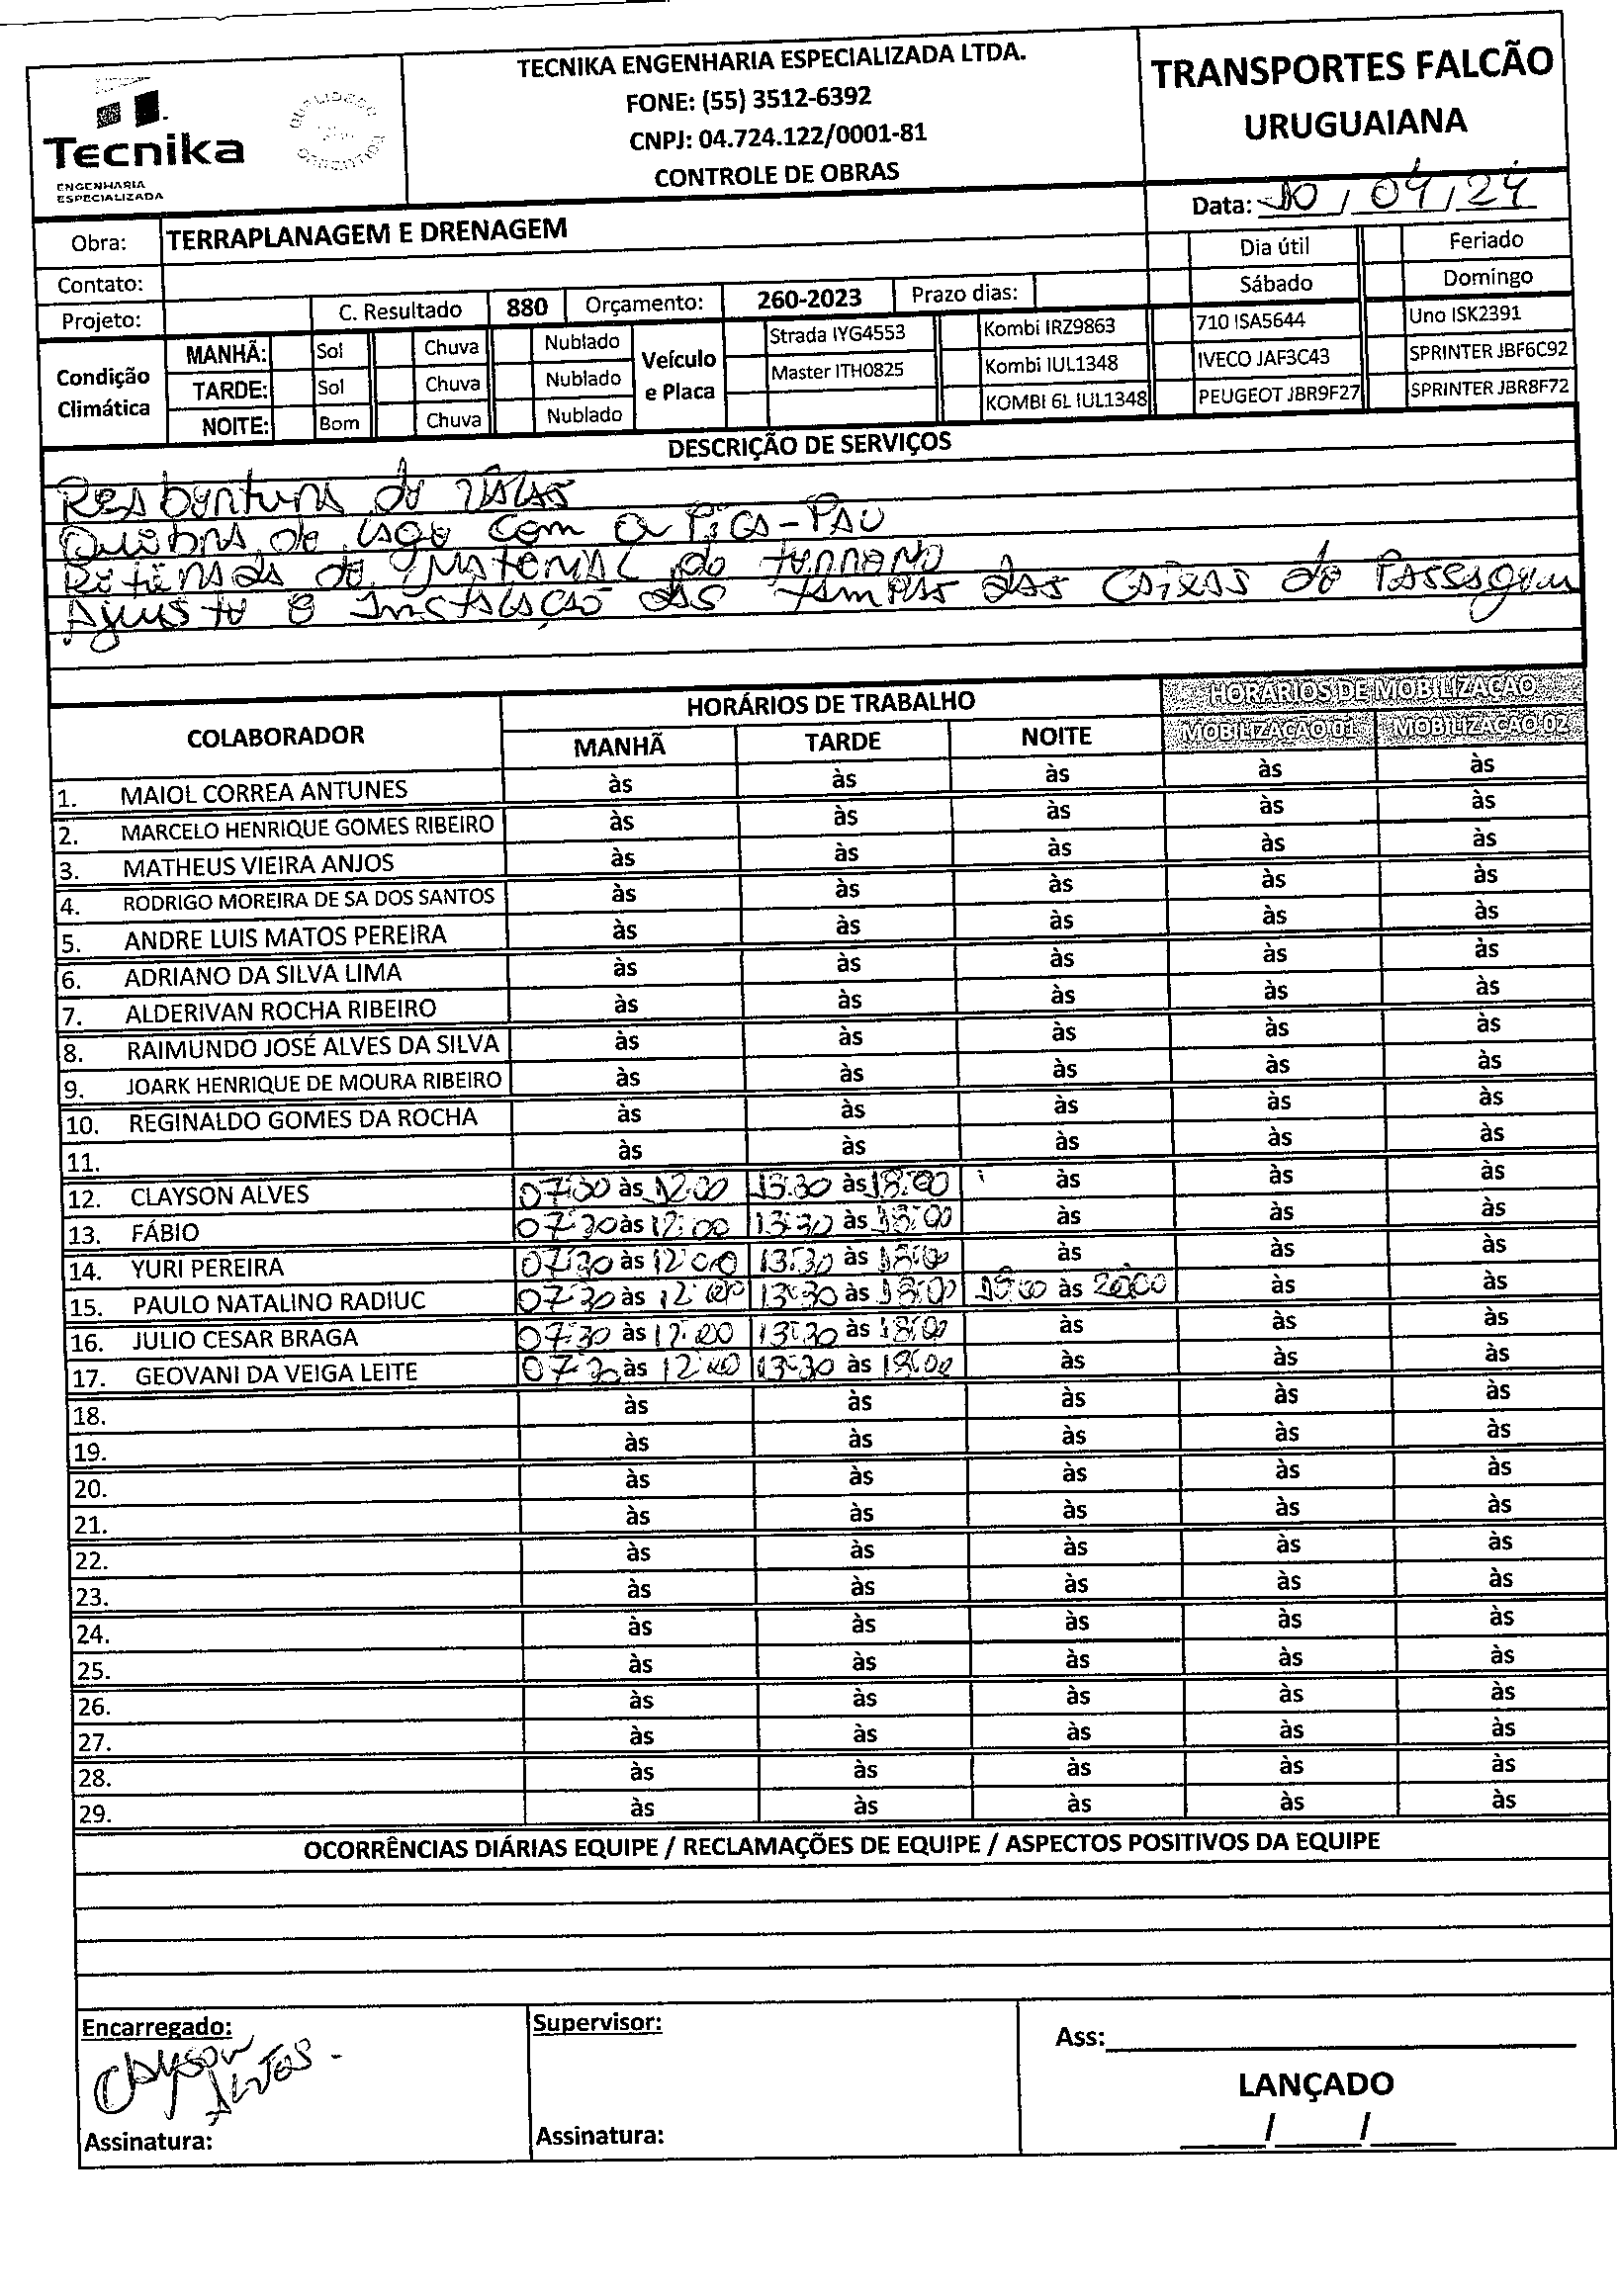 TECNIKA ENGENHARIA ESPECIALIZADA LTDA.
FONE: (55) 3512-6392
CNPJ: 04.724.122/0001-81
CONTROLE DE OBRAS
Tecnika
ENGENHARIA
ESPECIALIZADA
TRANSPORTES FALCÃO
URUGUAIANA
Data: 10/04/24
Obra: TERRAPLANAGEM E DRENAGEM
Contato:
Projeto: C. Resultado 880 Orçamento: 260-2023 Prazo dias:
Dia útil Feriado
Sábado Domingo
Condição Climática
MANHÃ: Sol Chuva Nublado
TARDE: Sol Chuva Nublado
NOITE: Bom Chuva Nublado
Veículo e Placa
Strada IYG4553 Kombi IRZ9863 710 ISA5644 Uno ISK2391
Master ITH0825 Kombi IUL1348 IVECO JAF3C43 SPRINTER JBF6C92
KOMBI 6L IUL1348 PEUGEOT JBR9F27 SPRINTER JBR8F72
DESCRIÇÃO DE SERVIÇOS
Reabentura de valas
Quebra de lage com a Pica-Pau
Retirada de material do terreno
Ajuste e Instalação das tampas das caixas de Passagem
COLABORADOR HORÁRIOS DE TRABALHO HORÁRIOS DE MOBILIZAÇÃO
MANHÃ TARDE NOITE MOBILIZAÇÃO 01 MOBILIZAÇÃO 02
1. MAIOL CORREA ANTUNES às às às às às
2. MARCELO HENRIQUE GOMES RIBEIRO às às às às às
3. MATHEUS VIEIRA ANJOS às às às às às
4. RODRIGO MOREIRA DE SA DOS SANTOS às às às às às
5. ANDRE LUIS MATOS PEREIRA às às às às às
6. ADRIANO DA SILVA LIMA às às às às às
7. ALDERIVAN ROCHA RIBEIRO às às às às às
8. RAIMUNDO JOSÉ ALVES DA SILVA às às às às às
9. JOARK HENRIQUE DE MOURA RIBEIRO às às às às às
10. REGINALDO GOMES DA ROCHA às às às às às
11. às às às às às
12. CLAYSON ALVES 07:30 às 12:00 13:30 às 18:00 às às às
13. FÁBIO 07:30 às 12:00 13:30 às 18:00 às às às
14. YURI PEREIRA 07:30 às 12:00 13:30 às 18:00 às às às
15. PAULO NATALINO RADIUC 07:30 às 12:00 13:30 às 18:00 às 20:00 às às
16. JULIO CESAR BRAGA 07:30 às 12:00 13:30 às 18:00 às às às
17. GEOVANI DA VEIGA LEITE 07:30 às 12:00 13:30 às 18:00 às às às
18. às às às às às
19. às às às às às
20. às às às às às
21. às às às às às
22. às às às às às
23. às às às às às
24. às às às às às
25. às às às às às
26. às às às às às
27. às às às às às
28. às às às às às
29. às às às às às
OCORRÊNCIAS DIÁRIAS EQUIPE / RECLAMAÇÕES DE EQUIPE / ASPECTOS POSITIVOS DA EQUIPE
Encarregado: Supervisor: Ass:
Clayson
Alves
LANÇADO
Assinatura: Assinatura: / /